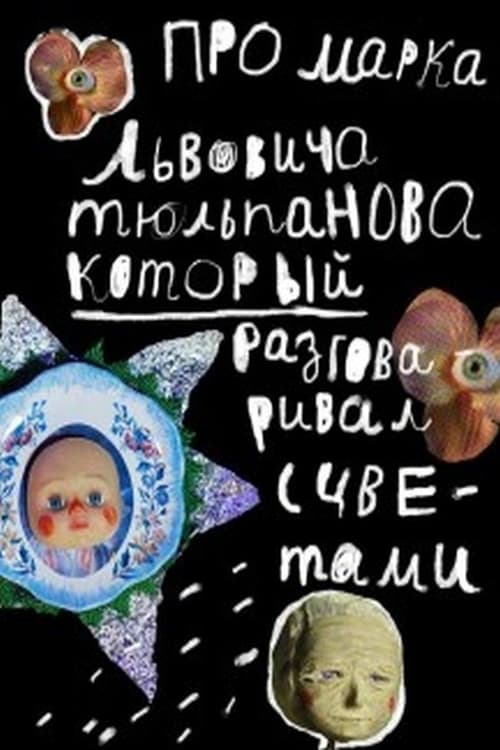 ПРО марка
Львовича
тюльпаНОВА
который
разгова
ривал
с цвЕ-
тами